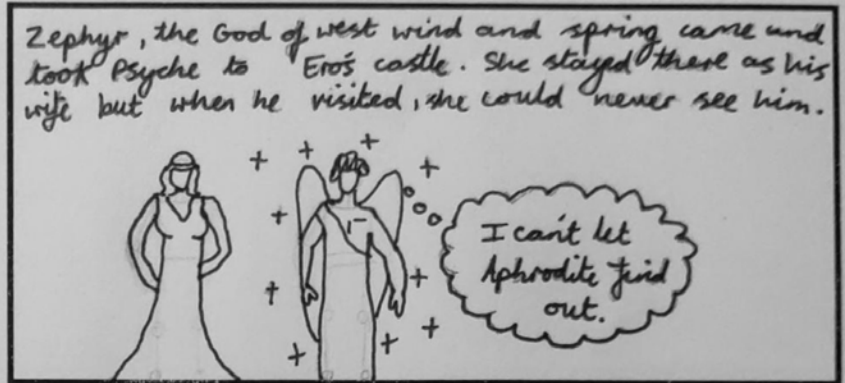 Zephyr, the God of west wind and spring came and
took Psyche to Ero's castle. She stayed there as his
wife but when he visited, she could never see him.
I can't let
Aphrodite find
out.